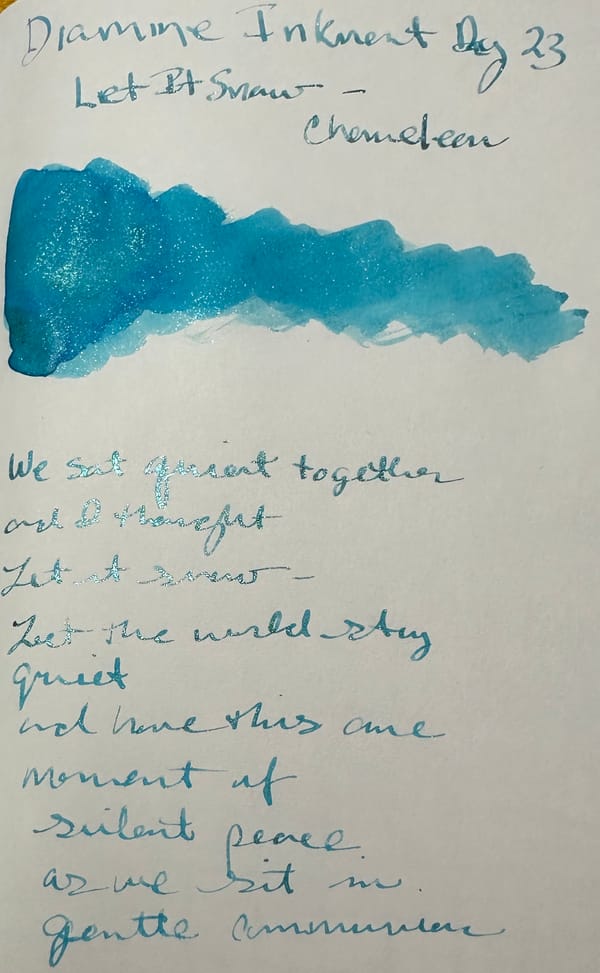 Diamine Inkvent Day 23
Let It Snow -
Chameleon
We sat quiet together
and I thought
Let it snow -
Let the world stay
quiet
and have this one
moment of
silent peace
as we sit in
gentle communion